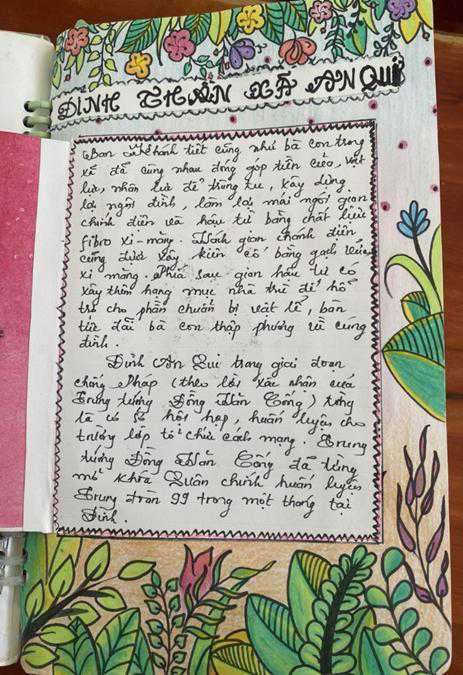 ĐÌNH THẦN XÃ AN QUI
Ban Khánh tiết cũng như bà con trong
xã đã cùng nhau đóng góp tiền của, vật
lực, nhân lực để trùng tu, xây dựng
lại ngôi đình, làm lại mái ngói gian
chánh điện và hậu tứ bằng chất liệu
fibro xi-măng. Vách gian chánh điện
cũng được xây kiên cố bằng gạch
xi măng. Phía sau gian hậu tứ có
xây thêm hạng mục nhà trù để hỗ
trợ cho phần chuẩn bị vật lễ, bàn
tiệc đãi bà con thập phương về cúng
đình.
Đình An Qui trong giai đoạn
chống Pháp (theo lời xác nhận của
Trung tướng Đồng Văn Cống) từng
là cơ sở hội họp, huấn luyện cho
trường lớp tổ chức cách mạng. Trung
tướng Đồng Văn Cống đã từng
mở khóa Quân chính huấn luyện
Trung đoàn 99 trong một tháng tại
Đình.